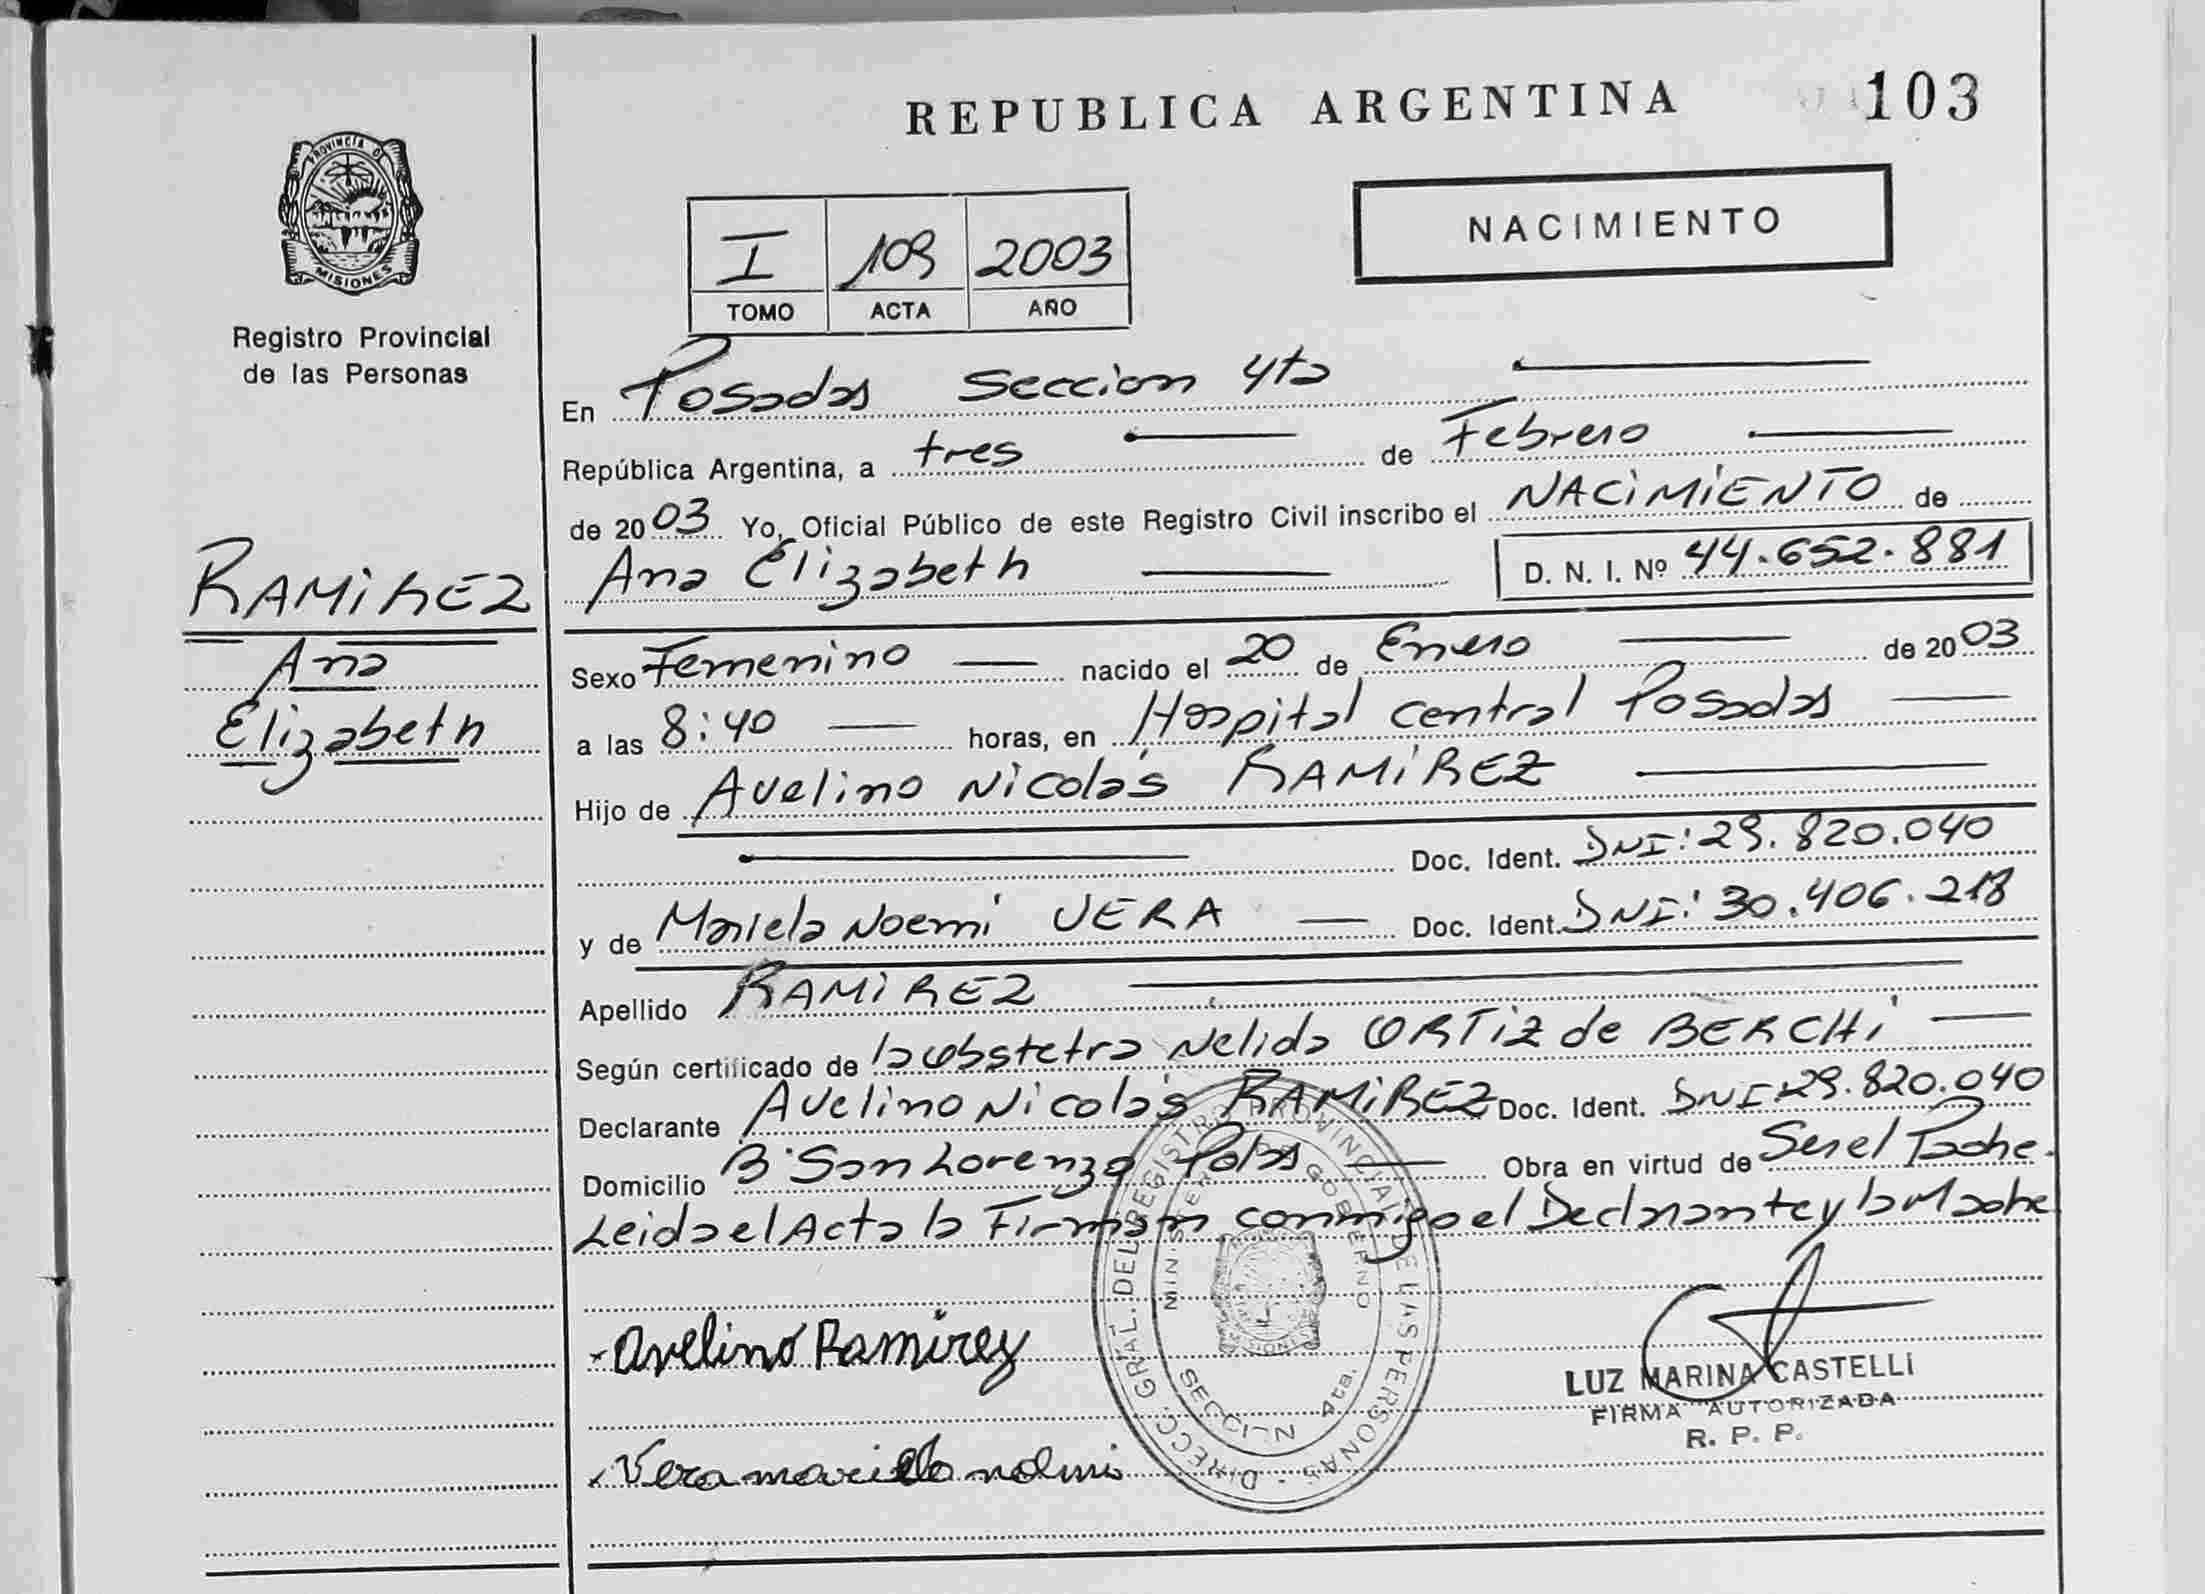 REPUBLICA ARGENTINA 103
PROVINCIA DE
MISIONES
Registro Provincial
de las Personas
NACIMIENTO
I 109 2003
TOMO ACTA AÑO
En Posadas Seccion 4ta
República Argentina, a tres de Febrero
de 2003 Yo, Oficial Público de este Registro Civil inscribo el NACIMIENTO de
Ana Elizabeth D. N. I. Nº 44.652.881
RAMIREZ
Ana
Elizabeth
Sexo Femenino nacido el 20 de Enero de 2003
a las 8:40 horas, en Hospital Central Posadas
Hijo de Avelino Nicolás RAMIREZ
Doc. Ident. DNI: 29.820.040
y de Mariela Noemi VERA Doc. Ident. DNI: 30.406.218
Apellido RAMIREZ
Según certificado de la obstetra Nelida ORTIZ de BERCHI
Declarante Avelino Nicolás RAMIREZ Doc. Ident. DNI 29.820.040
Domicilio B° San Lorenzo Pdas Obra en virtud de Ser el Padre.
Leida el Acta la Firman conmigo el Declarante y la Madre
Avelino Ramirez
Vera mariela noemi
DIRECC. GRAL. DEL REGISTRO PROVINCIAL DE LAS PERSONAS
MINISTERIO GOBIERNO
SECCION 4ta.
LUZ MARINA CASTELLI
FIRMA AUTORIZADA
R. P. P.